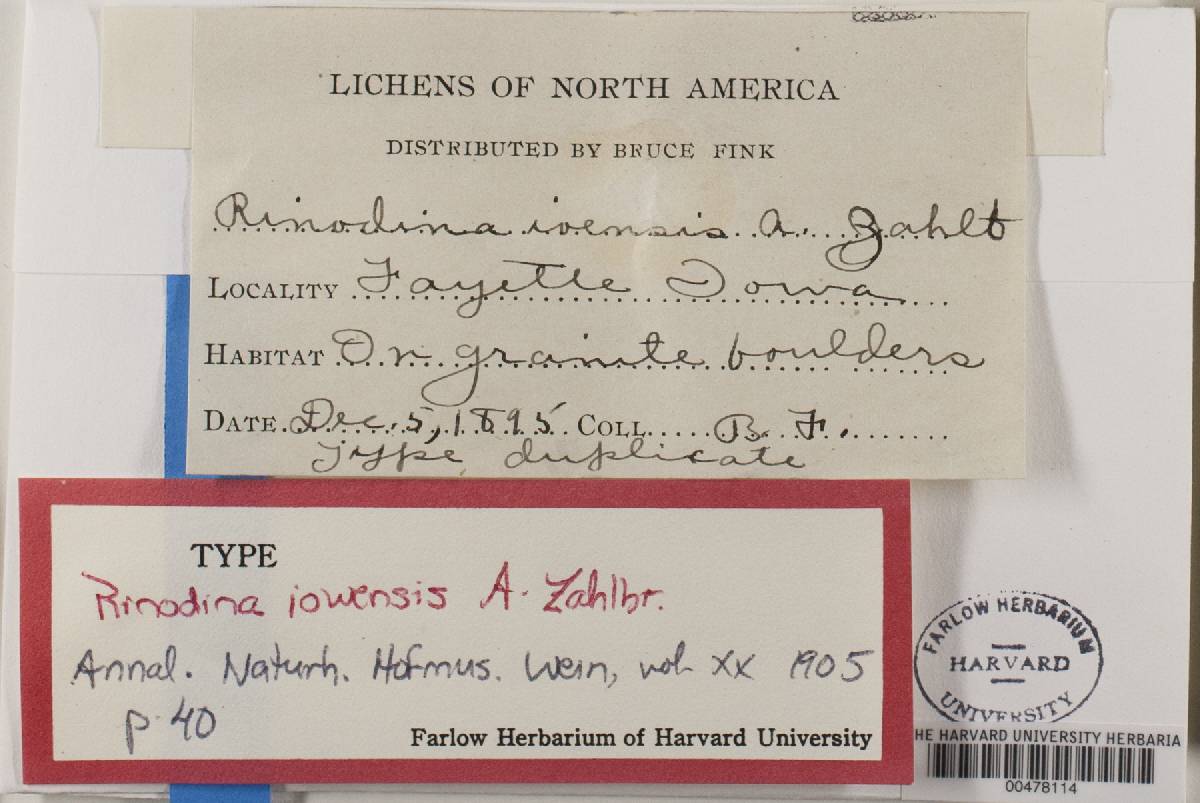 LICHENS OF NORTH AMERICA
DISTRIBUTED BY BRUCE FINK
Rinodina ioensis A. Zahlb
LOCALITY Fayette Iowa
HABITAT On granite boulders
DATE Dec. 5, 1895 COLL B. F.
Type duplicate
TYPE
Rinodina iowensis A. Zahlbr.
Annal. Naturh. Hofmus. Wein, vol. XX 1905
p. 40
Farlow Herbarium of Harvard University
FARLOW HERBARIUM
HARVARD
UNIVERSITY
HE HARVARD UNIVERSITY HERBARIA
00478114